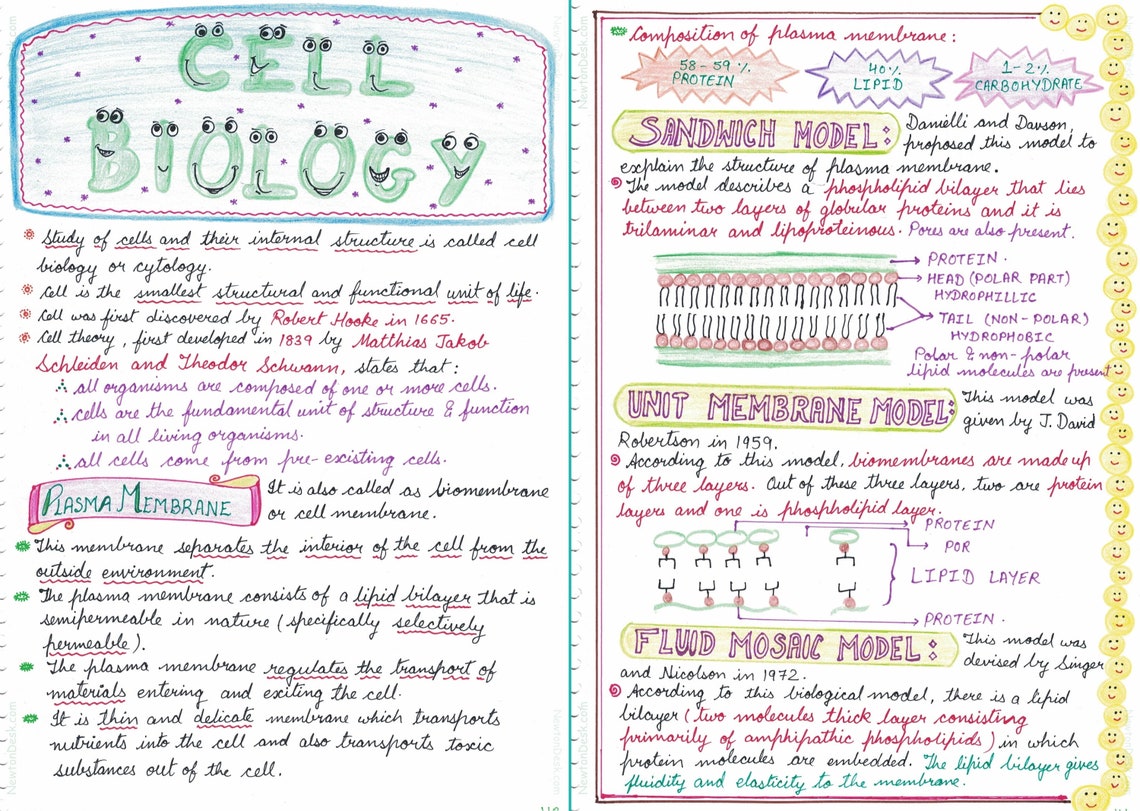 CELL
BIOLOGY
Study of cells and their internal structure is called cell
biology or cytology.
Cell is the smallest structural and functional unit of life.
Cell was first discovered by Robert Hooke in 1665.
Cell theory, first developed in 1839 by Matthias Jakob
Schleiden and Theodor Schwann, states that:
all organisms are composed of one or more cells.
cells are the fundamental unit of structure & function
in all living organisms.
all cells come from pre-existing cells.
PLASMA MEMBRANE
It is also called as biomembrane
or cell membrane.
This membrane separates the interior of the cell from the
outside environment.
The plasma membrane consists of a lipid bilayer that is
semipermeable in nature (specifically selectively
permeable).
The plasma membrane regulates the transport of
materials entering and exiting the cell.
It is thin and delicate membrane which transports
nutrients into the cell and also transports toxic
substances out of the cell.
NewtonDesk.com
NewtonDesk.com
Composition of plasma membrane:
58-59% PROTEIN
40% LIPID
1-2% CARBOHYDRATE
SANDWICH MODEL:
Danielli and Davson,
proposed this model to
explain the structure of plasma membrane.
The model describes a phospholipid bilayer that lies
between two layers of globular proteins and it is
trilaminar and lipoproteinous. Pores are also present.
PROTEIN.
HEAD (POLAR PART)
HYDROPHILLIC
TAIL (NON-POLAR)
HYDROPHOBIC
Polar & non-polar
lipid molecules are present
UNIT MEMBRANE MODEL:
This model was
given by J. David
Robertson in 1959.
According to this model, biomembranes are made up
of three layers. Out of these three layers, two are protein
layers and one is phospholipid layer.
PROTEIN
POR
LIPID LAYER
PROTEIN.
FLUID MOSAIC MODEL:
This model was
devised by Singer
and Nicolson in 1972.
According to this biological model, there is a lipid
bilayer (two molecules thick layer consisting
primarily of amphipathic phospholipids) in which
protein molecules are embedded. The lipid bilayer gives
fluidity and elasticity to the membrane.